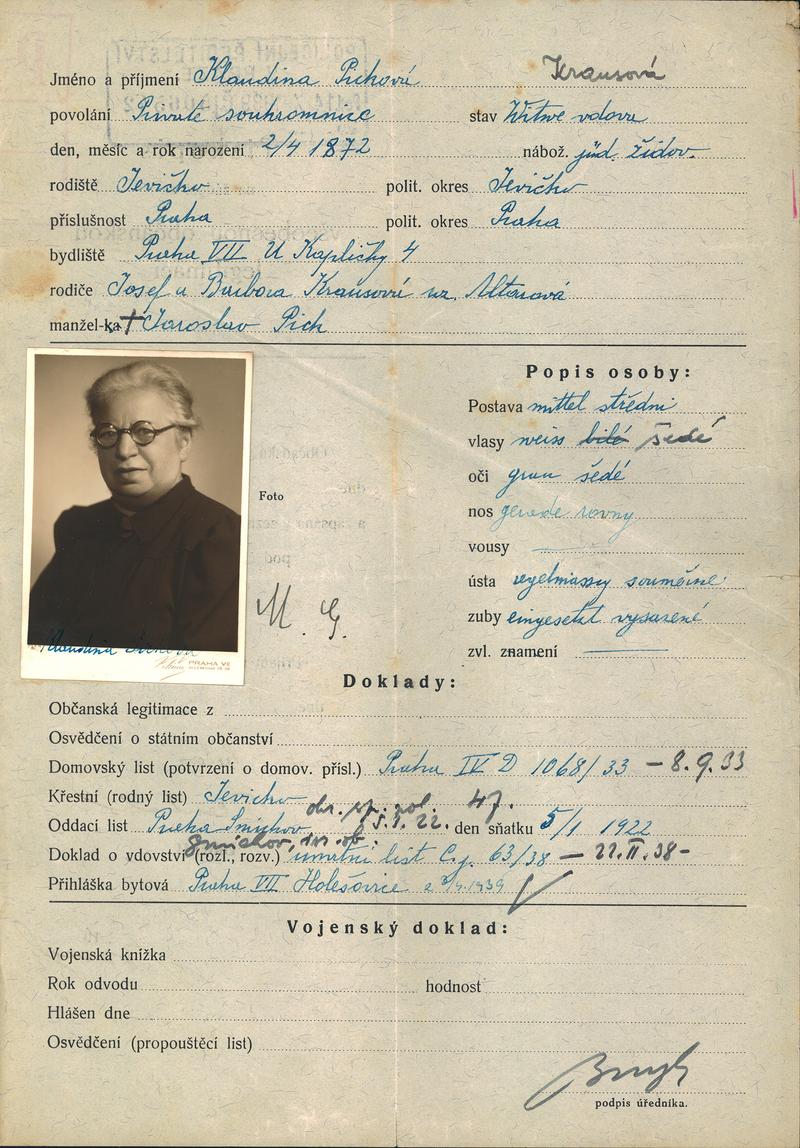 Jméno a příjmení Klaudina Pichová Krausová
povolání Private soukromnice stav Witwe vdova
den, měsíc a rok narození 2/4 1872 nábož. jüd. židov.
rodiště Jevíčko polit. okres Jevíčko
příslušnost Praha polit. okres Praha
bydliště Praha VII U Kapličky 4
rodiče Josef a Barbora Krausová
manžel-ka † Jaroslav Pich
Popis osoby:
Postava mittel střední
vlasy weiss bílé šedé
oči grau šedé
Foto
nos gerade rovný
vousy
ústa regelmässig souměrné
M. G.
zuby eingesetzt vysazené
zvl. znamení
Klaudina Pichová
PRAHA VII
Doklady:
Občanská legitimace z
Osvědčení o státním občanství
Domovský list (potvrzení o domov. přísl.) Praha IV D 1068/33 – 8.9.33
Křestní (rodný list) Jevíčko 47.
Oddací list Praha Smíchov 5.1.22. den sňatku 5/1 1922
Smíchov,
Doklad o vdovství (rozl., rozv.) úmrtní list C.j. 63/38 – 22.II.38-
Přihláška bytová Praha VII Holešovice
Vojenský doklad:
Vojenská knížka
Rok odvodu hodnost
Hlášen dne
Osvědčení (propouštěcí list)
podpis úředníka.